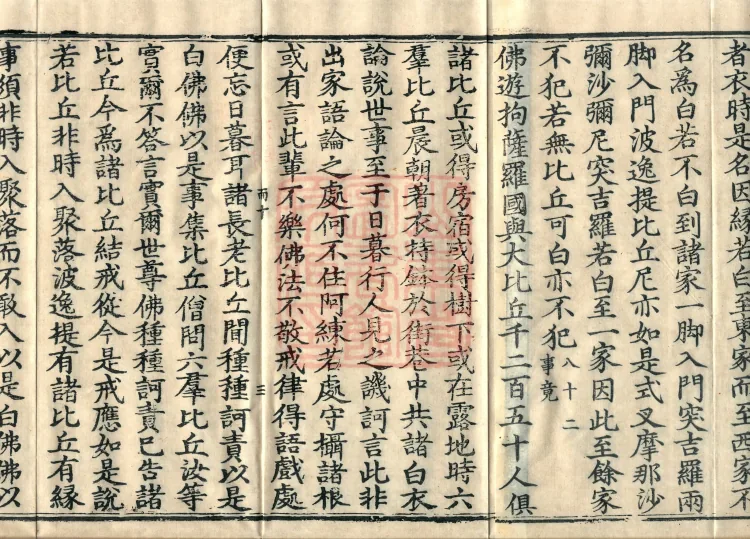 者衣時是名因緣若白至東家而至西家不
名為白若不白到諸家一脚入門突吉羅兩
脚入門波逸提比丘尼亦如是式叉摩那沙
彌沙彌尼突吉羅若白至一家因此至餘家
不犯若無比丘可白亦不犯 八十二事竟
佛遊拘薩羅國與大比丘千二百五十人俱
諸比丘或得房宿或得樹下或在露地時六
羣比丘晨朝著衣持鉢於街巷中共諸白衣
論說世事至于日暮行人見之譏訶言此非
出家語論之處何不住阿練若處守攝諸根
或有言此輩不樂佛法不敬戒律得語戲處
而十 三
便忘日暮耳諸長老比丘聞種種訶責以是
白佛佛以是事集比丘僧問六羣比丘汝等
實爾不答言實爾世尊佛種種訶責已告諸
比丘今為諸比丘結戒從今是戒應如是說
若比丘非時入聚落波逸提有諸比丘有緣
事須非時入聚落而不敢入以是白佛佛以